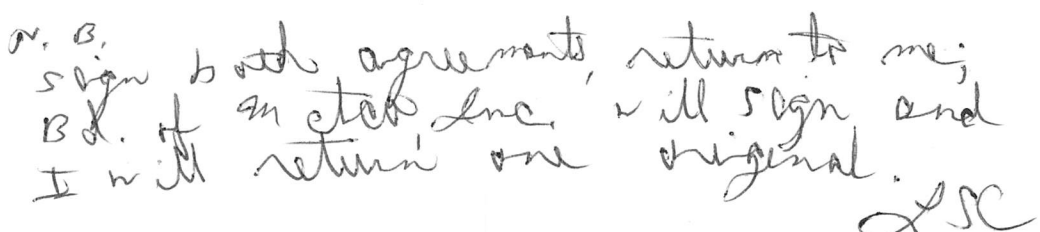 N. B.
sign both agreements, return to me;
Bd. of Inc. will sign and
I will return one original.
LSC